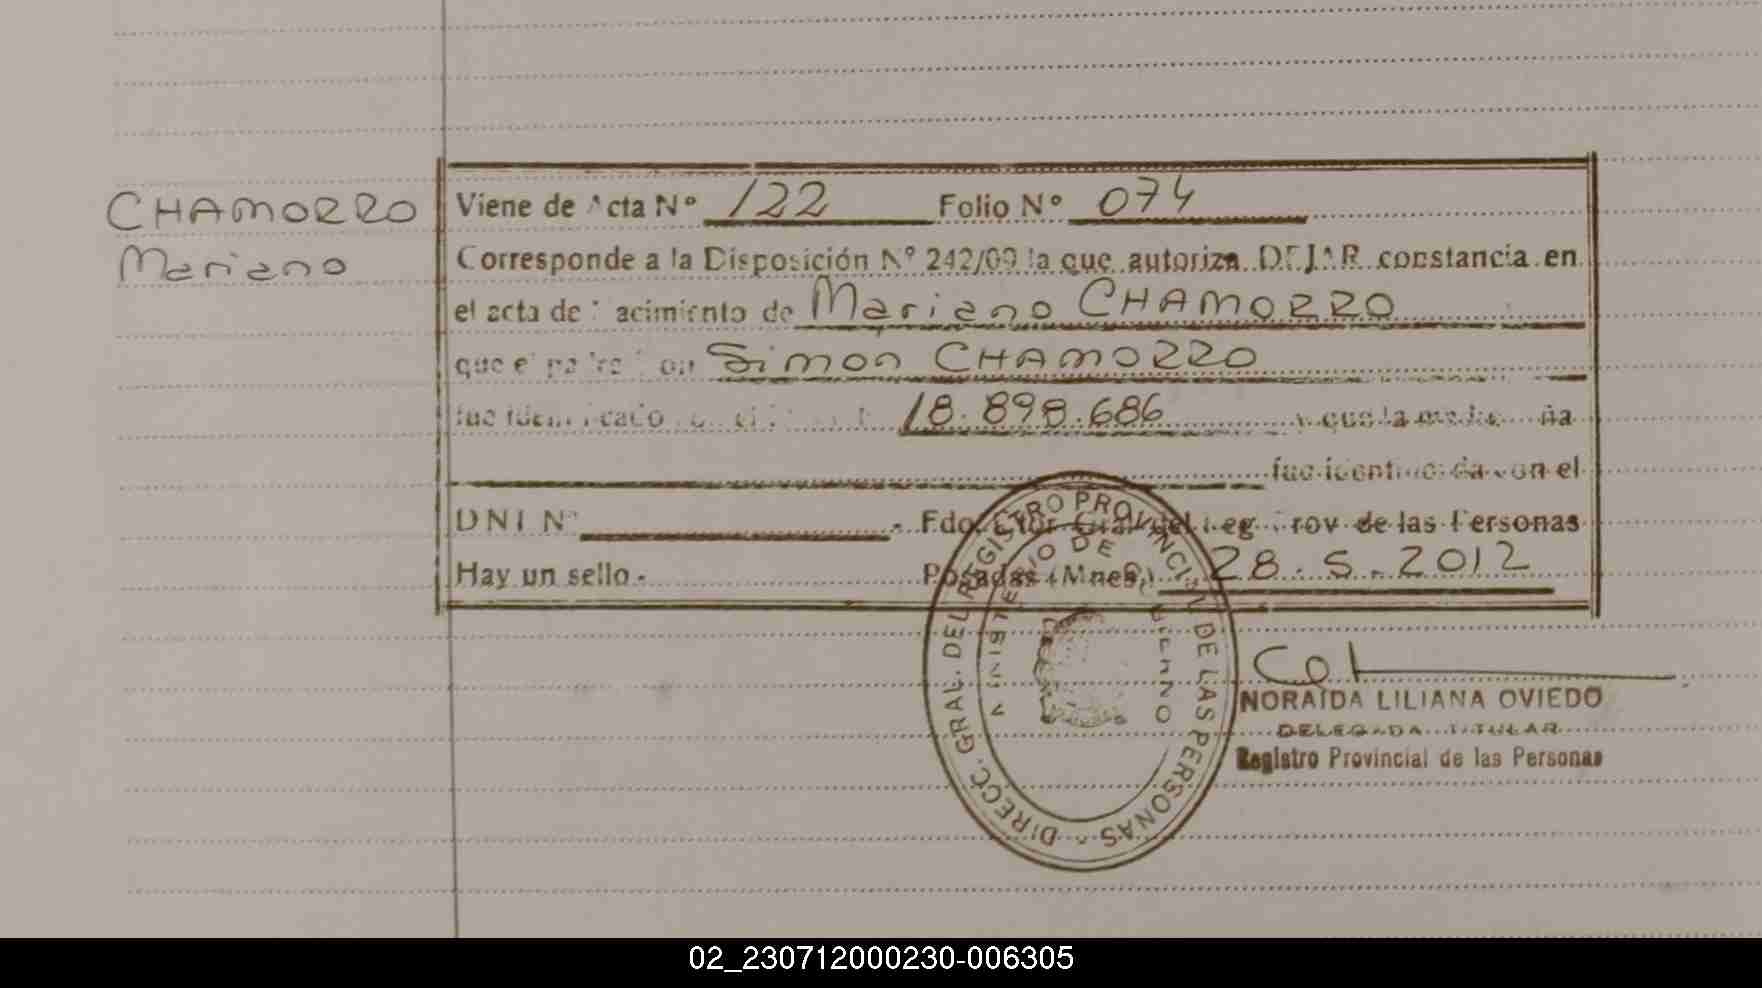 CHAMORRO
Mariano
Viene de Acta Nº 122 Folio Nº 074
Corresponde a la Disposición Nº 242/09 la que autoriza DEJAR constancia en
el acta de nacimiento de Mariano CHAMORRO
que el padre Don Simon CHAMORRO
fue identificado 18.898.686 y que la madre ña
fue identificada con el
DNI Nº - Fdo. Dtor. Gral. del Reg Prov de las Personas
Hay un sello.- Posadas (Mnes.) 28.5.2012
DIRECC. GRAL. DEL REGISTRO PROVINCIAL DE LAS PERSONAS
MINISTERIO DE GOBIERNO
NORAIDA LILIANA OVIEDO
DELEGADA TITULAR
Registro Provincial de las Personas
02_230712000230-006305